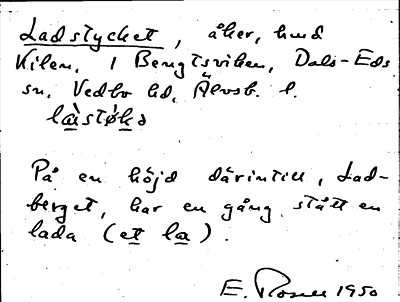 Ladstycket, åker, hmd
Kilen, i Bengtsviken, Dals-Eds
sn, Vedbo hd, Älvsb. l.
På en höjd därintill, Lad-
berget, har en gång stått en
lada (et la).
E. 1950